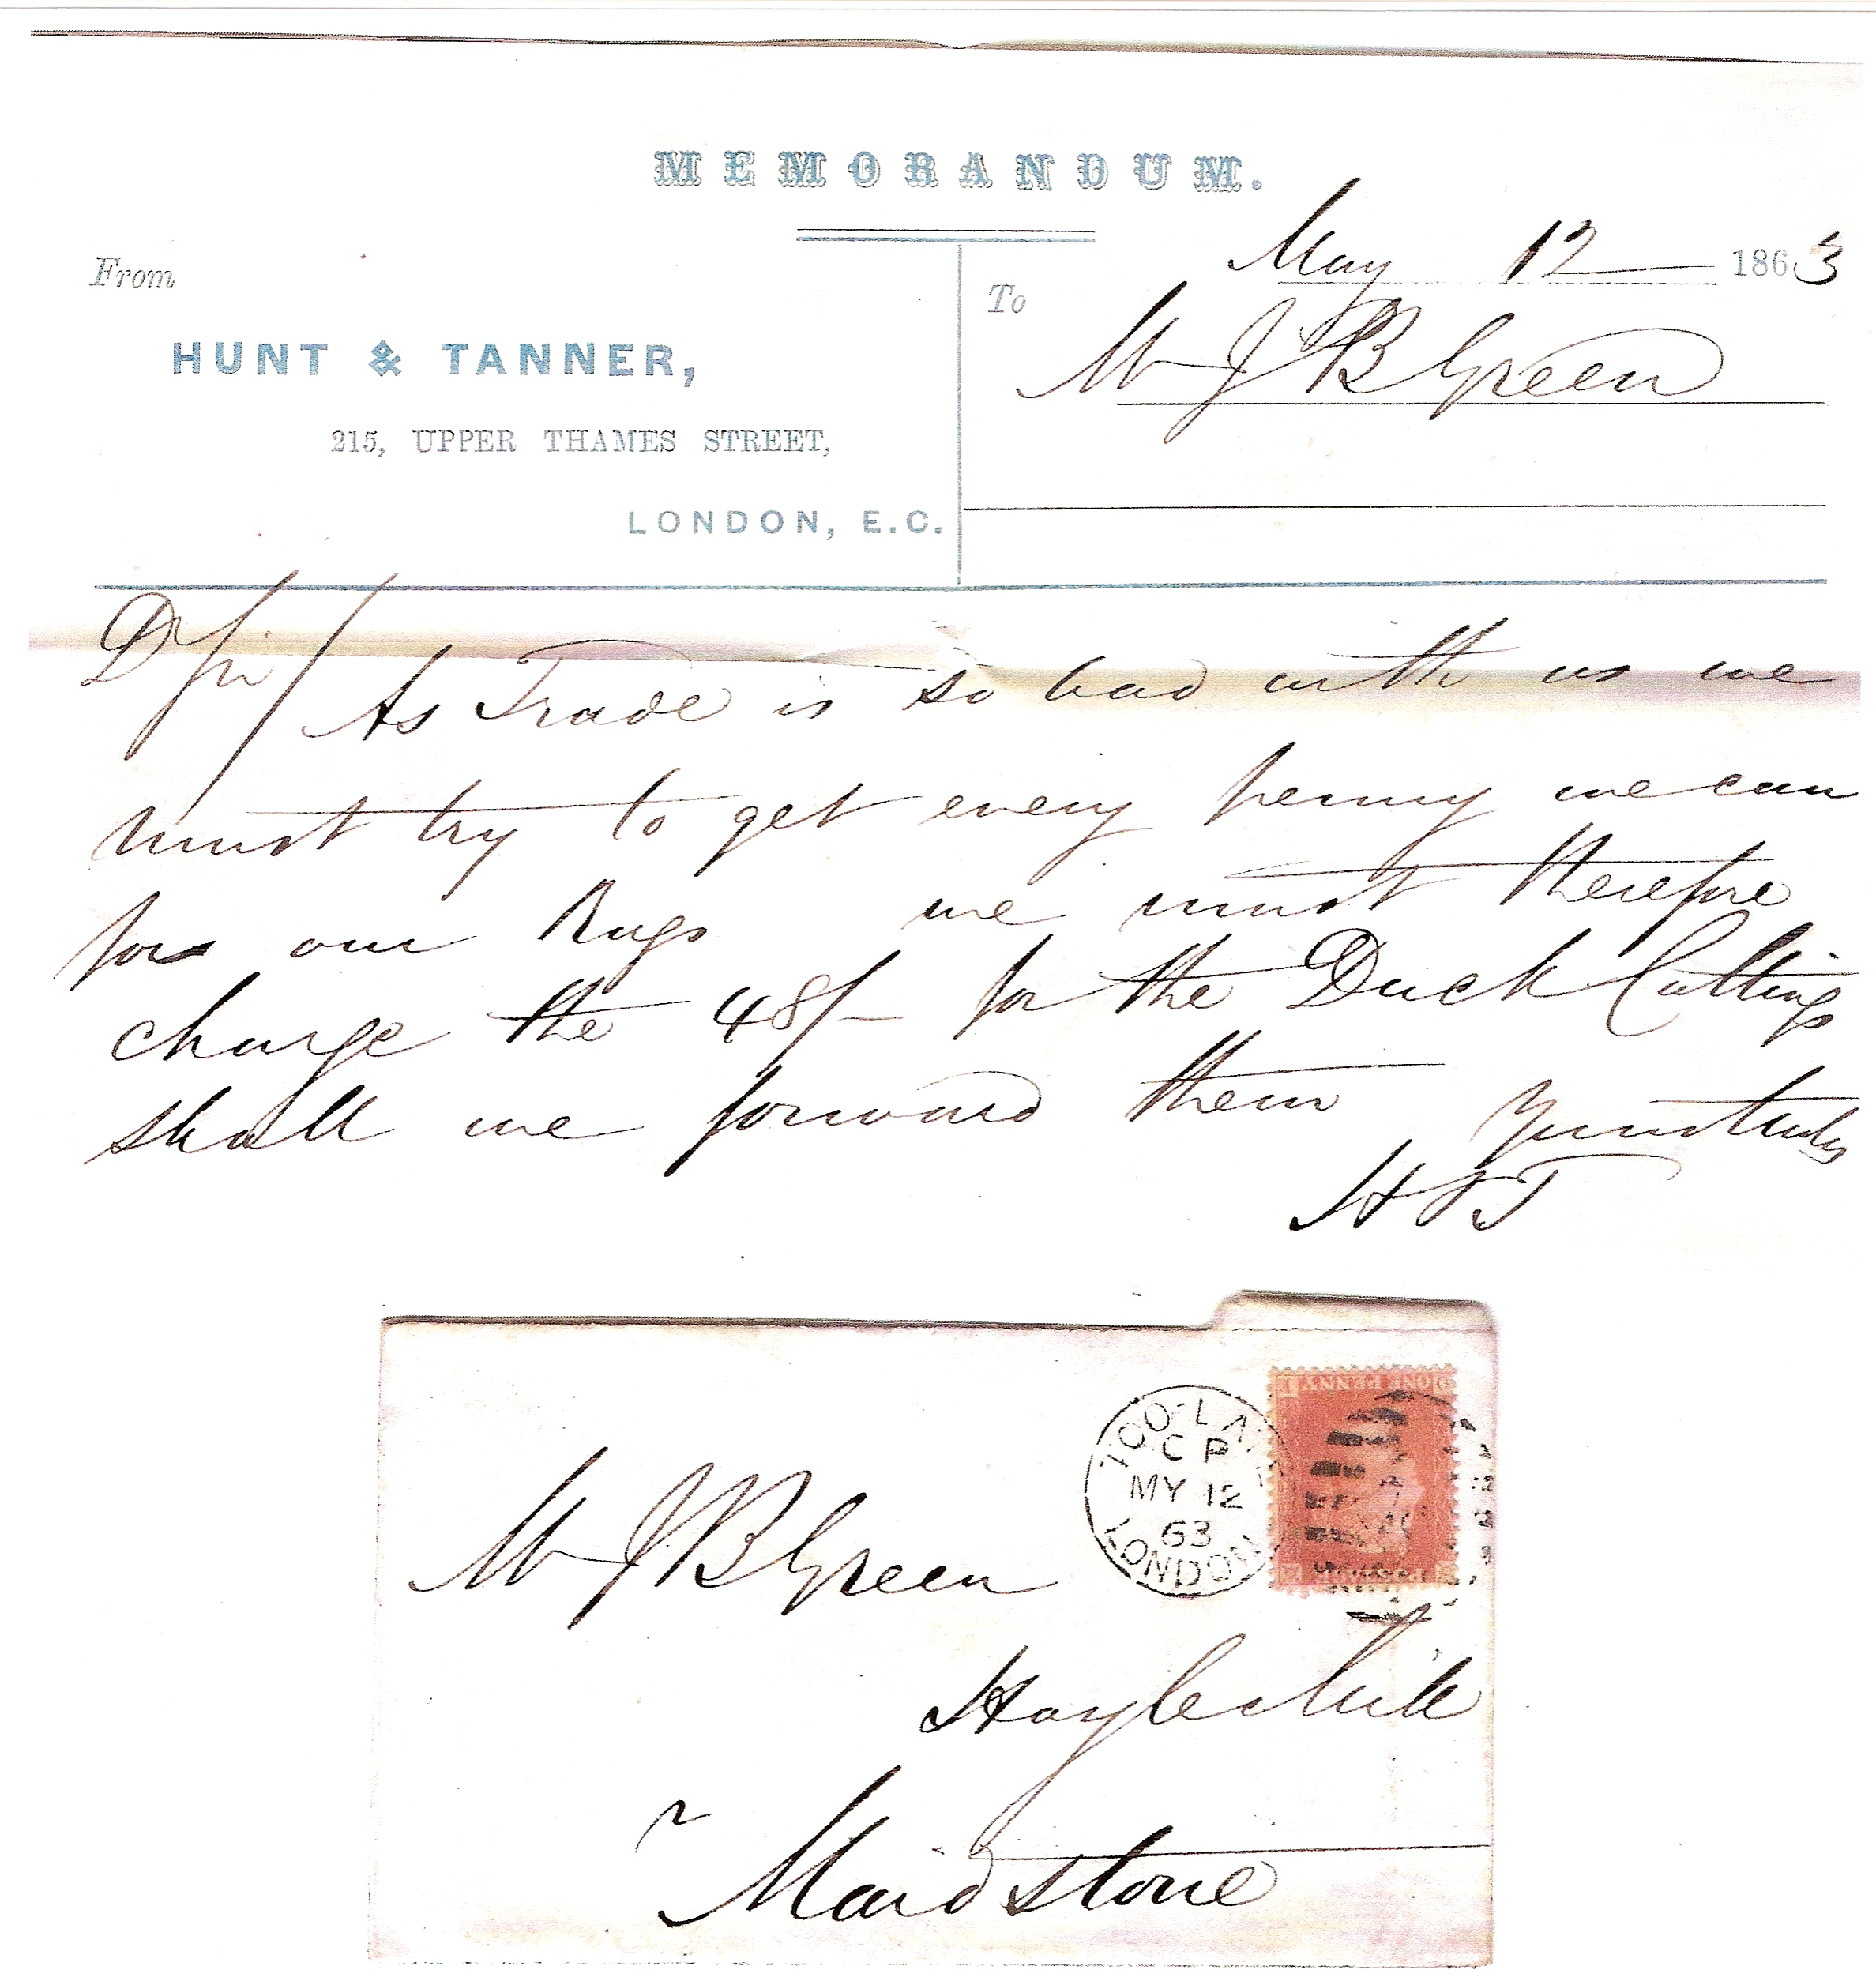 MEMORANDUM.
May 12 1863
From
To
Mr J B Green
HUNT & TANNER,
215, UPPER THAMES STREET,
LONDON, E.C.
D Sir/
As Trade is so bad with us we
must try to get every penny we can
for our Rags we must therefore
charge the 48/- for the Duck Cuttings
shall we forward them Yours truly
H & T
TOO-LATE
C P
MY 12
63
LONDON
ONE PENNY
Mr J B Green
Hayle Mill
Maidstone